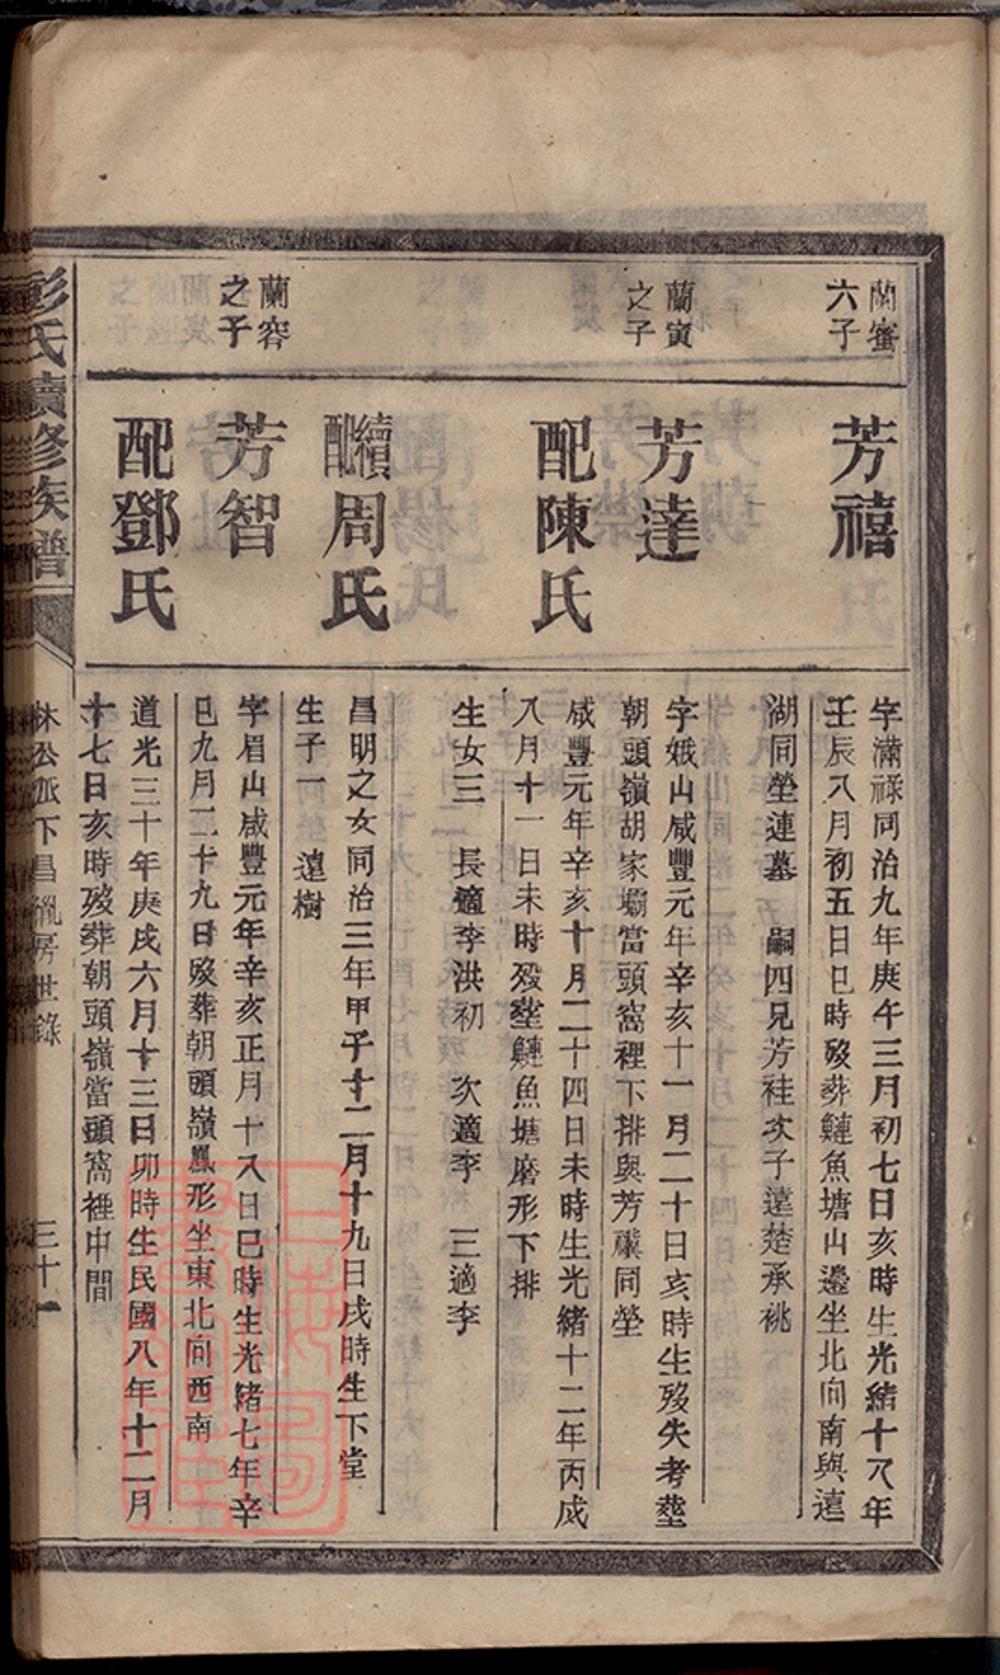 蘭蜜
六子
芳禧
字滿祿同治九年庚午三月初七日亥時生光緒十八年
壬辰八月初五日巳時歿葬鰱魚塘山邊坐北向南與遠
湖同塋連墓　嗣四兄芳桂次子遠楚承祧
蘭寅
之子
芳達
字娥山咸豐元年辛亥十一月二十日亥時生歿失考塟
朝頭嶺胡家壩當頭窩裡下排與芳同塋
配陳氏
咸豐元年辛亥十月二十四日未時生光緒十二年丙戌
八月十一日未時歿塟鰱魚塘磨形下排
生女三　長適李洪初　次適李　三適李
續配周氏
昌明之女同治三年甲子十二月十九日戌時生下堂
生子一　遠樹
蘭容
之子
芳智
字眉山咸豐元年辛亥正月十八日巳時生光緒七年辛
巳九月二十九日歿葬朝頭嶺鳳形坐東北向西南
配鄧氏
道光三十年庚戌六月十三日卯時生民國八年十二月
十七日亥時歿葬朝頭嶺當頭窩裡中間
彭氏續修族譜
林公派下昌房世錄
三十一
上海圖書館藏